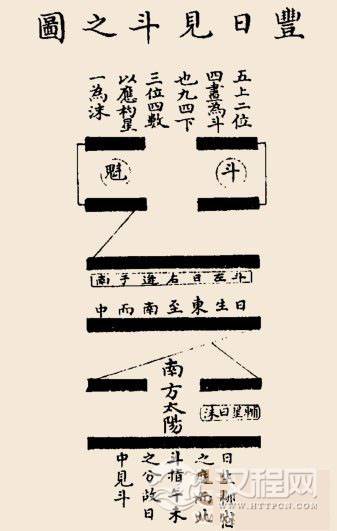 豐日見斗之圖
五上二位
四畫為斗
也九四下
三位四數
以應杓星
一為沬
斗
魁
斗左日右逰于南
日生東至南而中
南方太陽
輔星曰沬
日生
之
斗指午未
之分故日
中見斗
汉程网
HTTPCN.COM